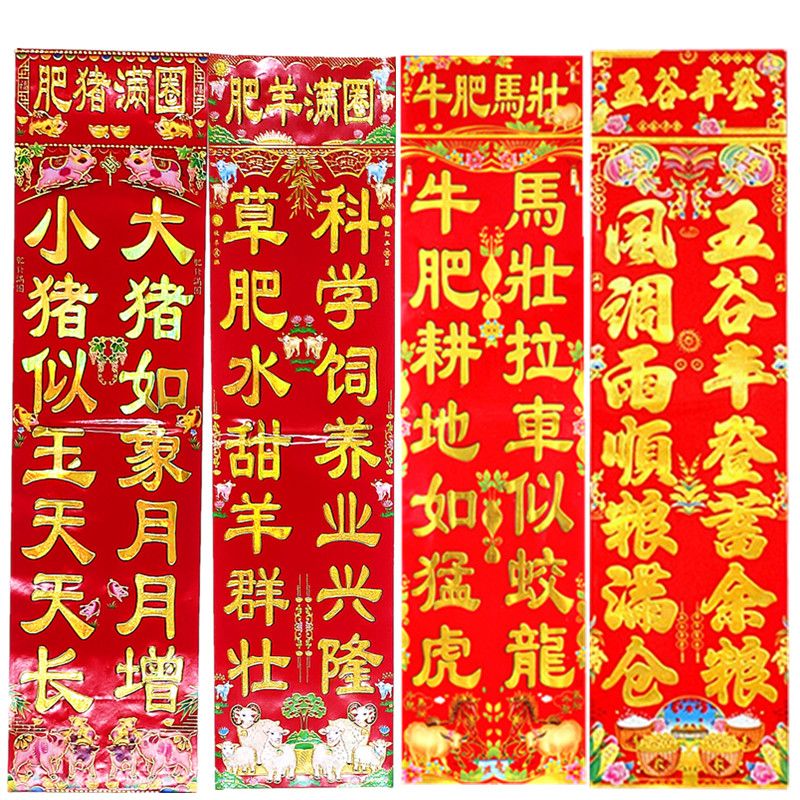 肥猪满圈
大猪如象月月增
小猪似玉天天长
肥羊满圈
科学饲养业兴隆
草肥水甜羊群壮
牛肥馬壯
馬壯拉車似蛟龍
牛肥耕地如猛虎
五谷丰登
五谷丰登蓄余粮
風调雨順粮满仓